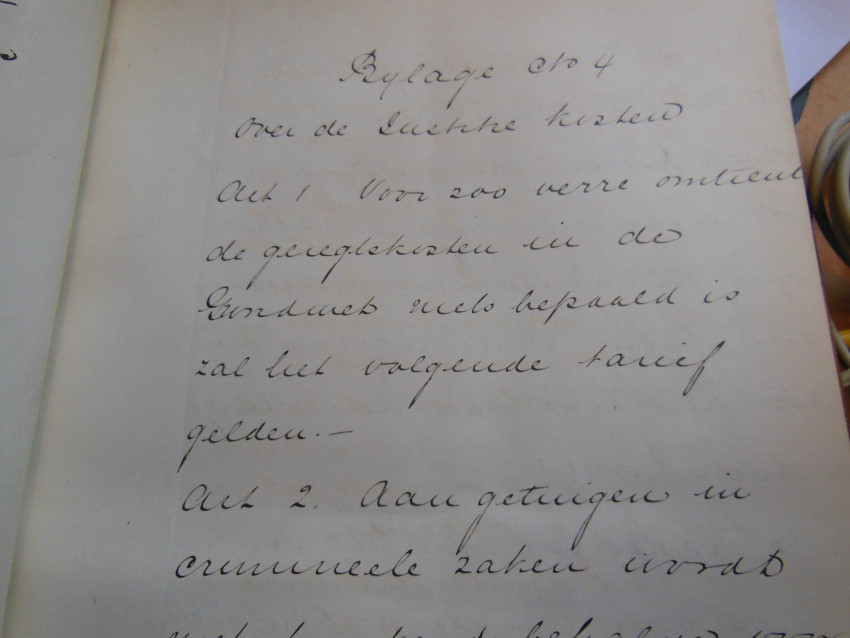 Bylage No 4
Over de Justitie kosten
Art 1 Voor zoo verre omtrent
de geregtskosten in de
Grondwet niets bepaald is
zal het volgende tarief
gelden.—
Art 2. Aan getuigen in
crimineele zaken wordt